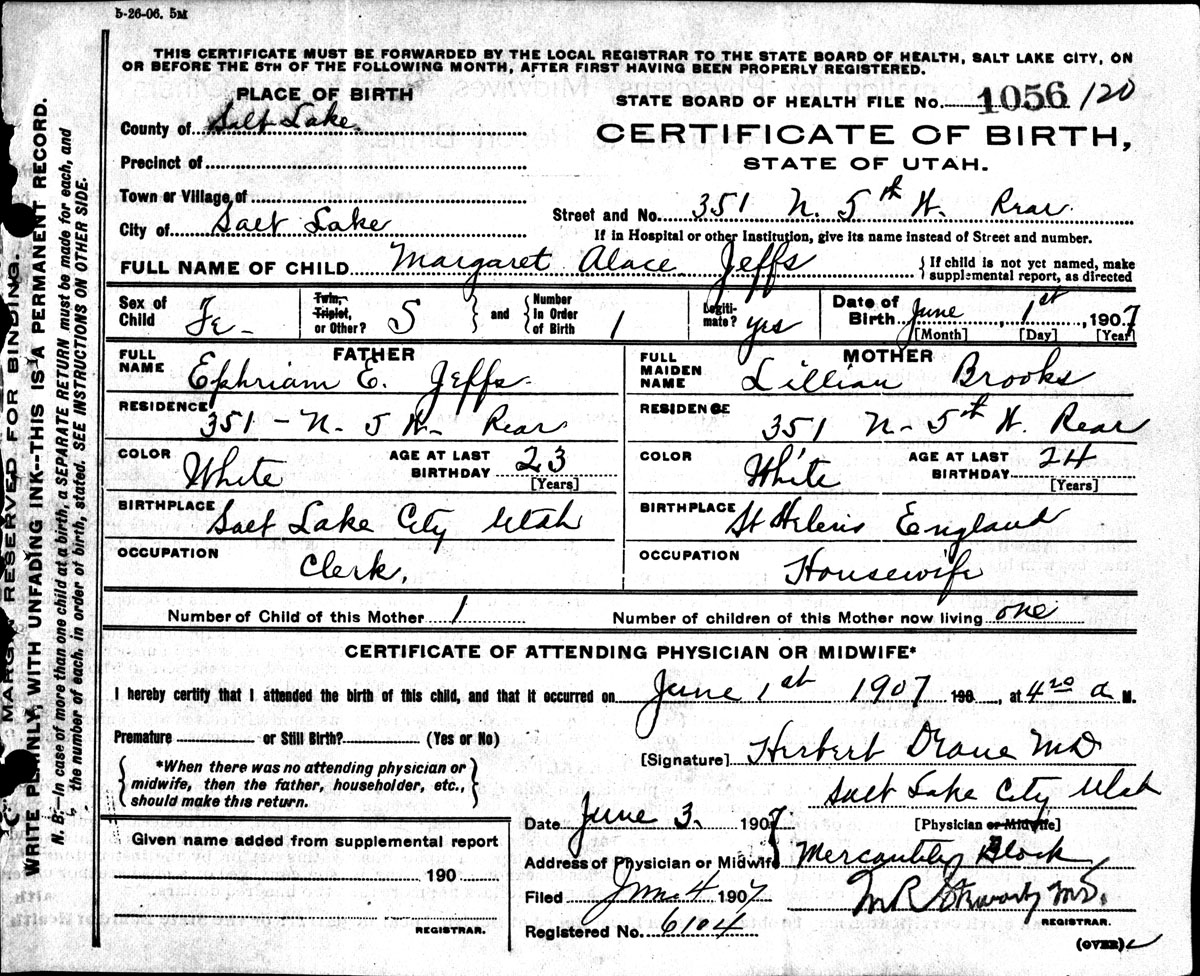 5-26-06. 5M
THIS CERTIFICATE MUST BE FORWARDED BY THE LOCAL REGISTRAR TO THE STATE BOARD OF HEALTH, SALT LAKE CITY, ON
OR BEFORE THE 5TH OF THE FOLLOWING MONTH, AFTER FIRST HAVING BEEN PROPERLY REGISTERED.
PLACE OF BIRTH
STATE BOARD OF HEALTH FILE No. 1056 /120
County of Salt Lake
CERTIFICATE OF BIRTH,
STATE OF UTAH.
Precinct of
Town or Village of
Street and No. 351 N. 5th W. Rear
City of Salt Lake
If in Hospital or other Institution, give its name instead of Street and number.
FULL NAME OF CHILD Margaret Alace Jeffs
{ If child is not yet named, make
supplemental report, as directed
Sex of Child Fe-
Twin, Triplet, or Other? S
and
Number In Order of Birth 1
Legiti- mate? yes
Date of Birth June 1st, 1907
[Month] [Day] [Year]
FATHER
FULL NAME Ephriam E. Jeffs
MOTHER
FULL MAIDEN NAME Lillian Brooks
RESIDENCE 351 - N. 5 W- Rear
RESIDENCE 351 N- 5th W. Rear
COLOR White AGE AT LAST BIRTHDAY 23 [Years]
COLOR White AGE AT LAST BIRTHDAY 24 [Years]
BIRTHPLACE Salt Lake City Utah
BIRTHPLACE St Helens England
OCCUPATION Clerk.
OCCUPATION Housewife
Number of Child of this Mother 1 Number of children of this Mother now living one
CERTIFICATE OF ATTENDING PHYSICIAN OR MIDWIFE*
I hereby certify that I attended the birth of this child, and that it occurred on June 1st 1907 190, at 420 a M.
Premature or Still Birth? (Yes or No)
*When there was no attending physician or
midwife, then the father, householder, etc.,
should make this return.
[Signature] Herbert MD
Salt Lake City Utah
[Physician or Midwife]
Date June 3. 1907
Given name added from supplemental report
190
REGISTRAR.
Address of Physician or Midwife Block
Filed June 4 1907
M.D.
REGISTRAR.
Registered No. 6104
(OVER)
MARGIN RESERVED FOR BINDING.
WRITE PLAINLY, WITH UNFADING INK--THIS IS A PERMANENT RECORD.
N. B.—In case of more than one child at a birth, a SEPARATE RETURN must be made for each, and
the number of each, in order of birth, stated. SEE INSTRUCTIONS ON OTHER SIDE.